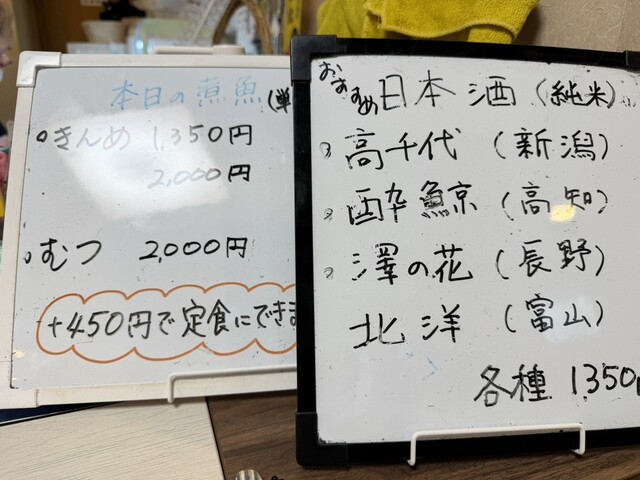 本日の煮魚 (単
きんめ 1,350円
2,000円
むつ 2,000円
+450円で定食にできま
おすすめ日本酒 (純米)
高千代 (新潟)
酔鯨 (高知)
澤の花 (長野)
北洋 (富山)
各種 1350円